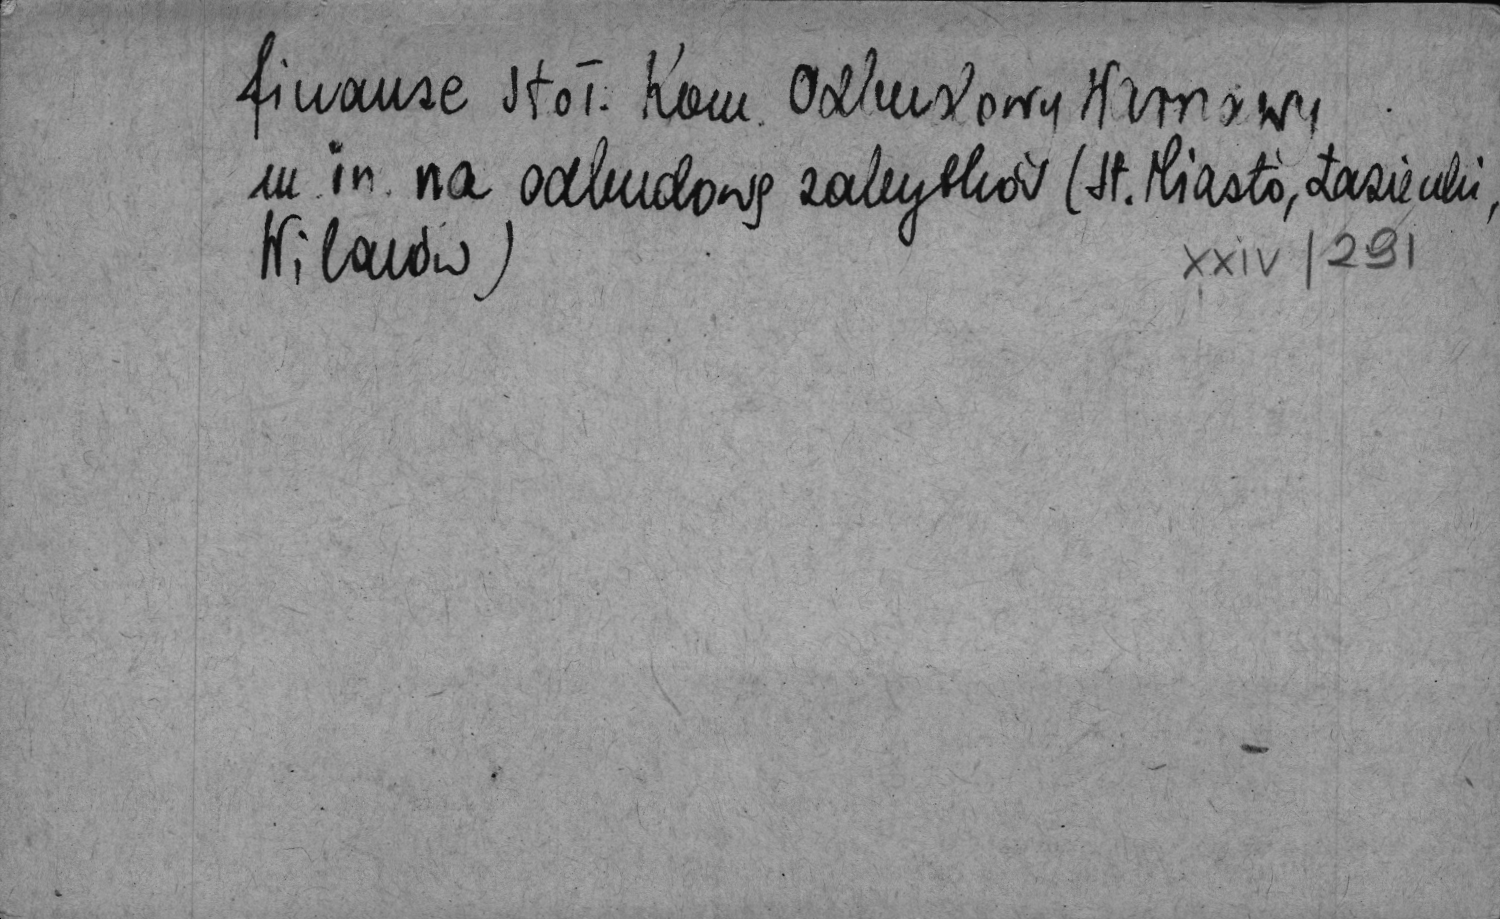 finanse Stoł. Kom. Odbudowy Warszawy
m in. na odbudowę zabytków (St. Miasto, Łazienki,
Wilanów)
XXIV / 291